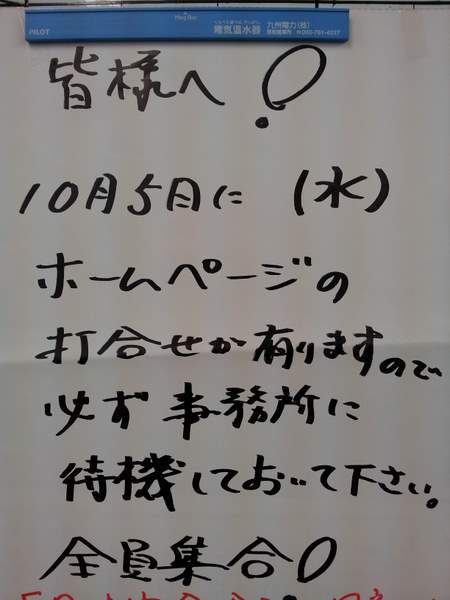 PILOT
Mag Bar
電気温水器
九州電力(株)
皆様へ!
10月5日に (水)
ホームページの
打合せが有りますので
必ず事務所に
待機しておいて下さい。
全員集合!